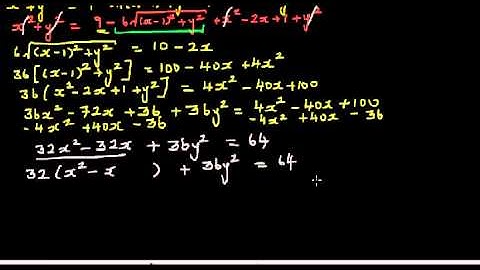 x² + y² = 9 - 6√(x-1)²+y² + x² - 2x + 1 + y²
6√(x-1)²+y² = 10 - 2x
36[(x-1)²+y²] = 100 - 40x + 4x²
36(x² - 2x + 1 + y²) = 4x² - 40x + 100
36x² - 72x + 36 + 36y² = 4x² - 40x + 100
-4x² + 40x - 36 -4x² + 40x - 36
32x² - 32x + 36y² = 64
32(x² - x ) + 36y² = 64